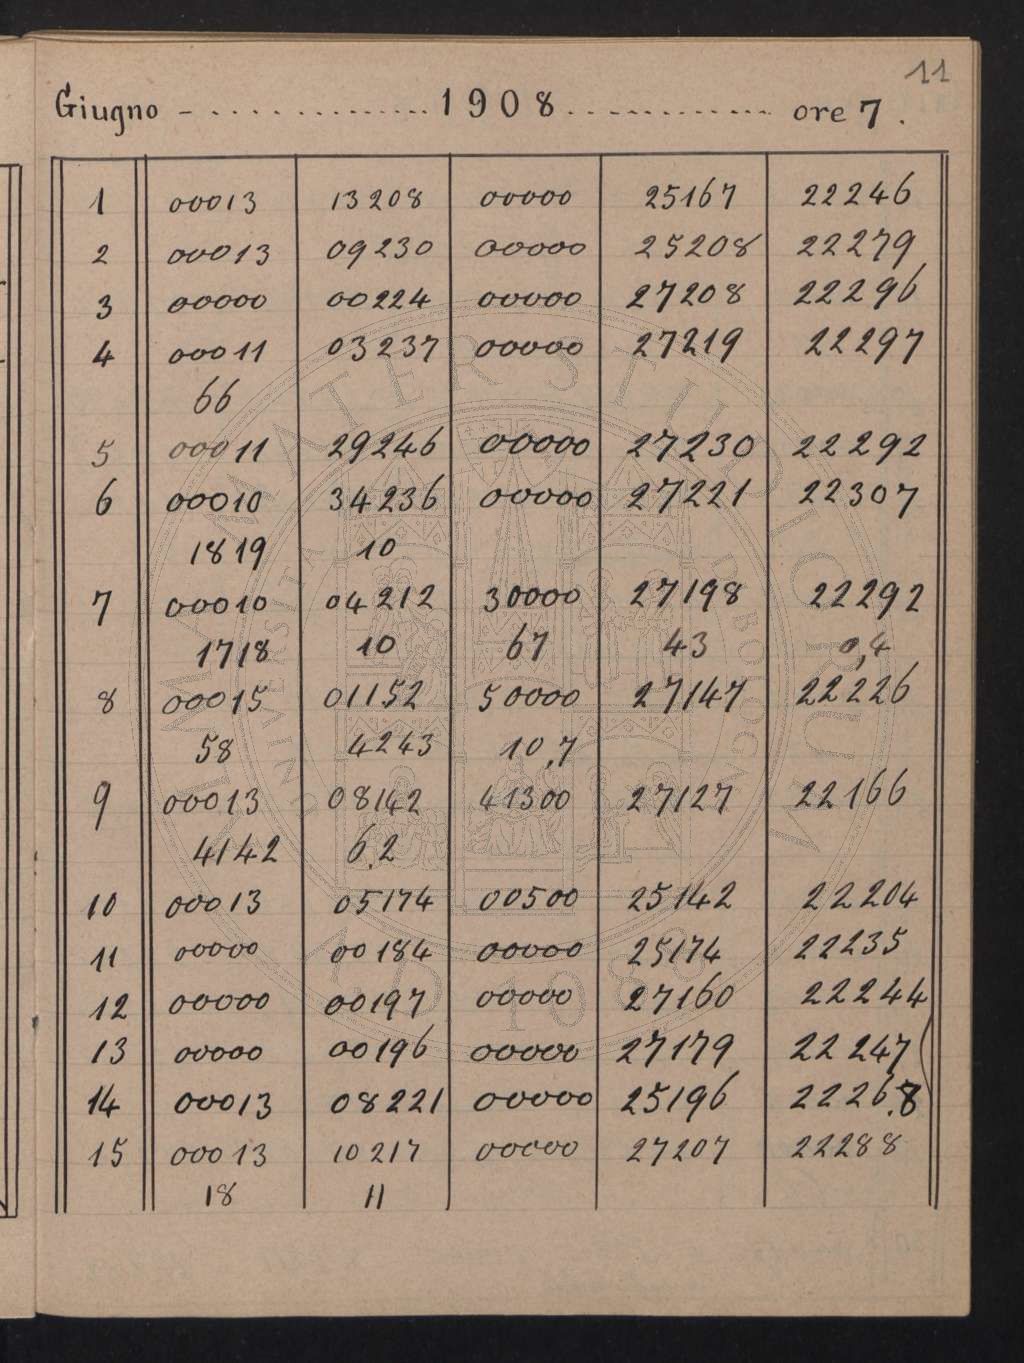 11
Giugno - . . . . . . . . . . . . . 1908 . . . . . . . . . . . . ore 7 .
1 00013 13208 00000 25167 22246
2 00013 09230 00000 25208 22279
3 00000 00224 00000 27208 22296
4 00011 03237 00000 27219 22297
66
5 00011 29246 00000 27230 22292
6 00010 34236 00000 27221 22307
1819 10
7 00010 04212 30000 27198 22292
1718 10 67 43 0,4
8 00015 01152 50000 27147 22226
58 4243 10,7
9 00013 08142 41300 27127 22166
4142 6,2
10 00013 05174 00500 25142 22204
11 00000 00184 00000 25174 22235
12 00000 00197 00000 27160 22244
13 00000 00196 00000 27179 22247
14 00013 08221 00000 25196 2226.8
15 00013 10217 00000 27207 22288
18 11
ALMA MATER STUDIORUM
A.D. 1088